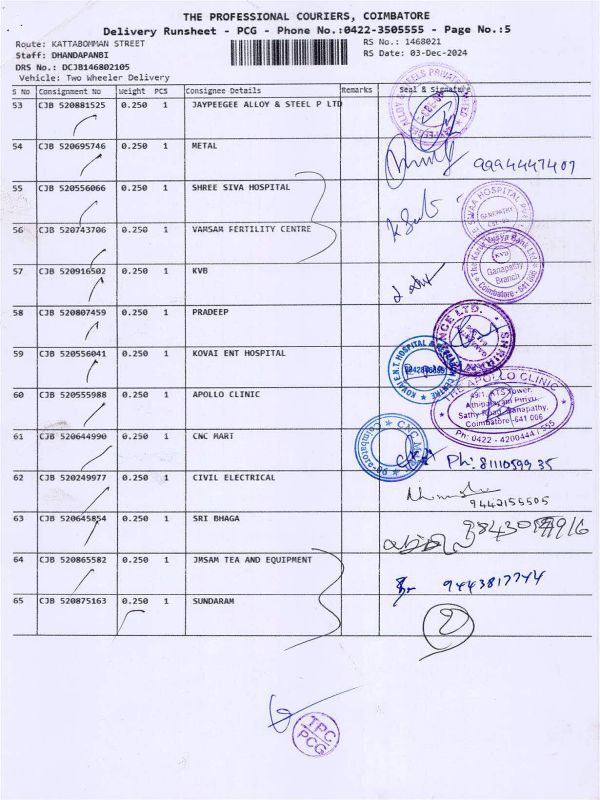 THE PROFESSIONAL COURIERS, COIMBATORE
Delivery Runsheet - PCG - Phone No.:0422-3505555 - Page No.:5
Route: KATTABOMMAN STREET RS No.: 1468021
Staff: DHANDAPANBI RS Date: 03-Dec-2024
DRS No.: DCJB146802105
Vehicle: Two Wheeler Delivery
S No Consignment No Weight PCS Consignee Details Remarks Seal & Signature
53 CJB 520881525 0.250 1 JAYPEEGEE ALLOY & STEEL P LTD
54 CJB 520695746 0.250 1 METAL
9994447407
55 CJB 520556066 0.250 1 SHREE SIVA HOSPITAL
GANAPATHY
56 CJB 520743706 0.250 1 VAMSAM FERTILITY CENTRE
KVB
57 CJB 520916502 0.250 1 KVB
Ganapathy
Branch
Coimbatore - 641 006
58 CJB 520807459 0.250 1 PRADEEP
59 CJB 520556041 0.250 1 KOVAI ENT HOSPITAL
KOVAI E.N.T. HOSPITAL &
60 CJB 520555988 0.250 1 APOLLO CLINIC
APOLLO CLINIC
49/1, KTS Tower,
Athipalayam Pirivu,
Sathy Road, Ganapathy,
Coimbatore-641 006
Ph: 0422 - 42004444 / 555
61 CJB 520644990 0.250 1 CNC MART
Ph: 8111059935
62 CJB 520249977 0.250 1 CIVIL ELECTRICAL
9442155505
63 CJB 520645854 0.250 1 SRI BHAGA
64 CJB 520865582 0.250 1 JMSAM TEA AND EQUIPMENT
9443817744
65 CJB 520875163 0.250 1 SUNDARAM
2
TPC
PCG